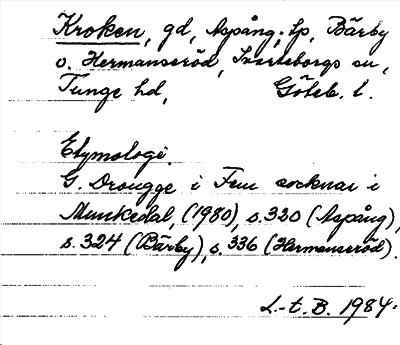 Kroken, gd, Aspång, lp, Bärby
o. Hermanseröd, Svarteborgs sn,
Tunge hd, Göteb. l.
Etymologi.
G. Drougge i Fem socknar i
Munkedal, (1980), s. 320 (Aspång),
s. 324 (Bärby), s. 336 (Hermanseröd).
L-t. B. 1984.